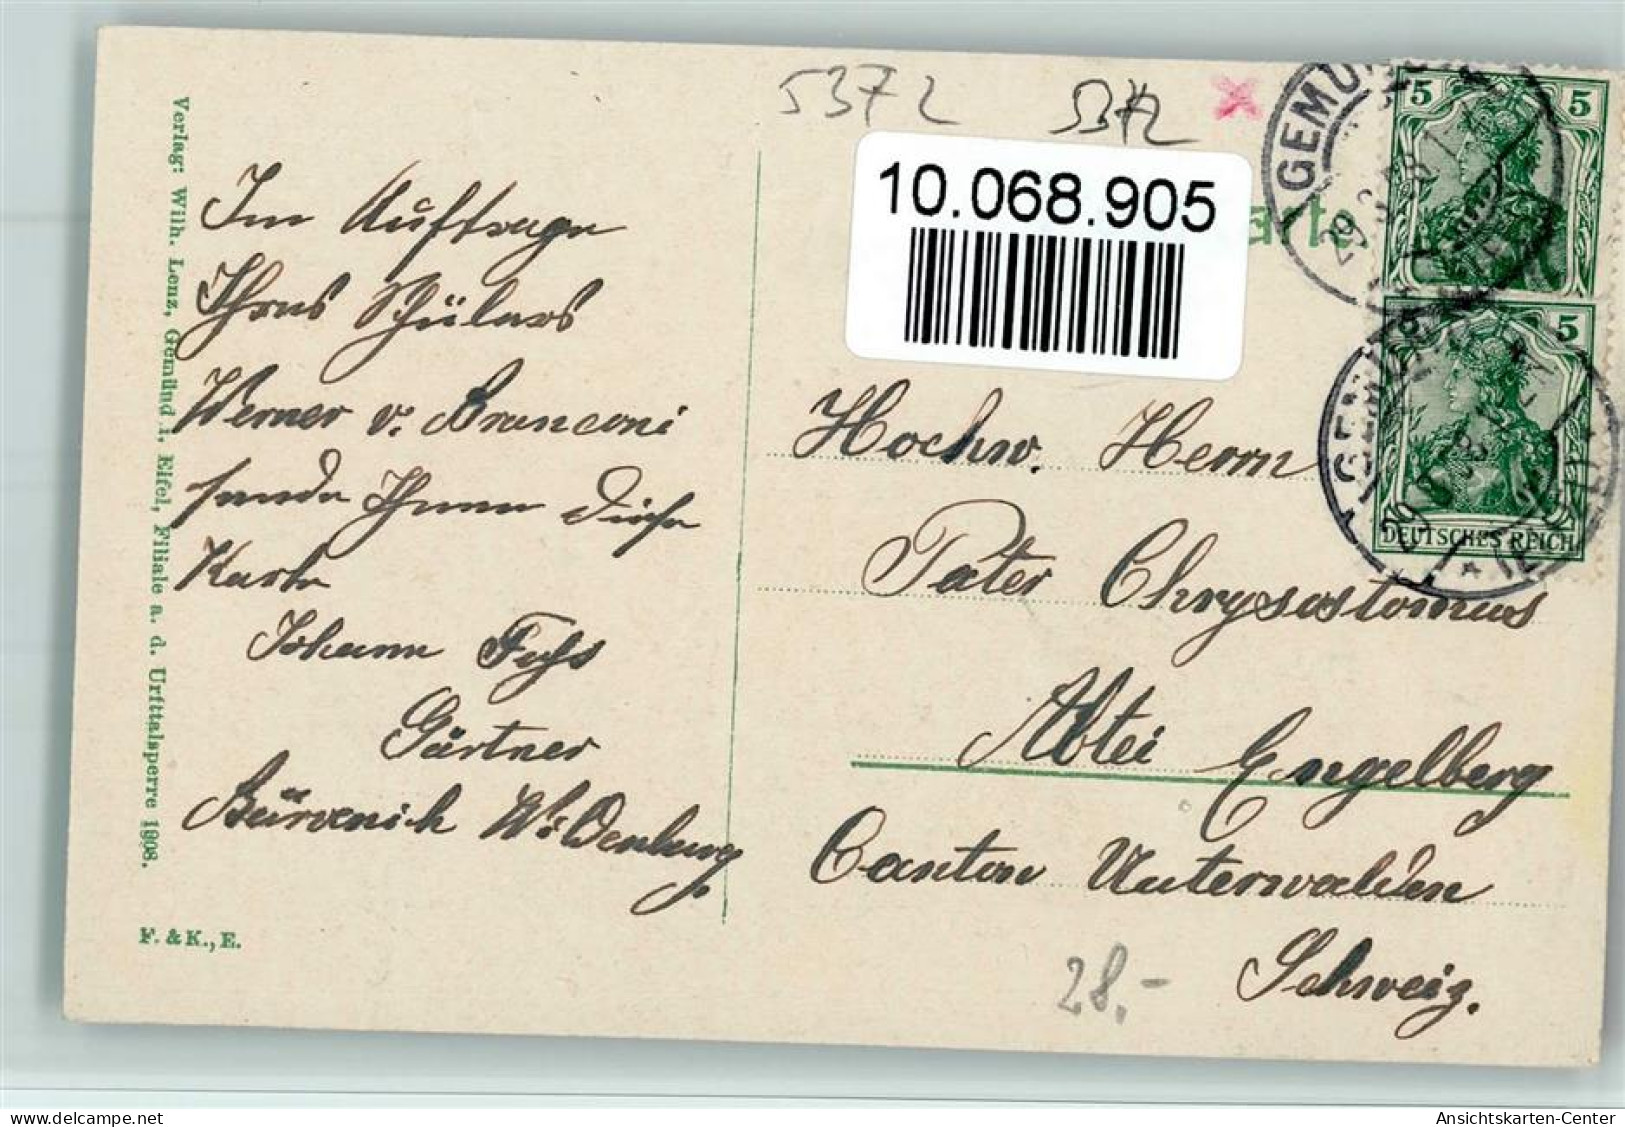 Verlag: Wilh. Lenz, Gemünd i. Eifel, Filiale a. d. Urfttalsperre 1908.
F. & K., E.
Im Auftrage
Ihres Schülers
Werner v. Branconi
sende Ihnen diese
Karte
Johann Fuhs
Gärtner
Bürvenich
5372
5372
10.068.905
arte
GEMÜND
5 5
5
DEUTSCHES REICH
Hochw. Herrn
Pater Chrysostomus
Abtei Engelberg
Canton Unterwalden
Schweiz.
28.-
Ansichtskarten-Center